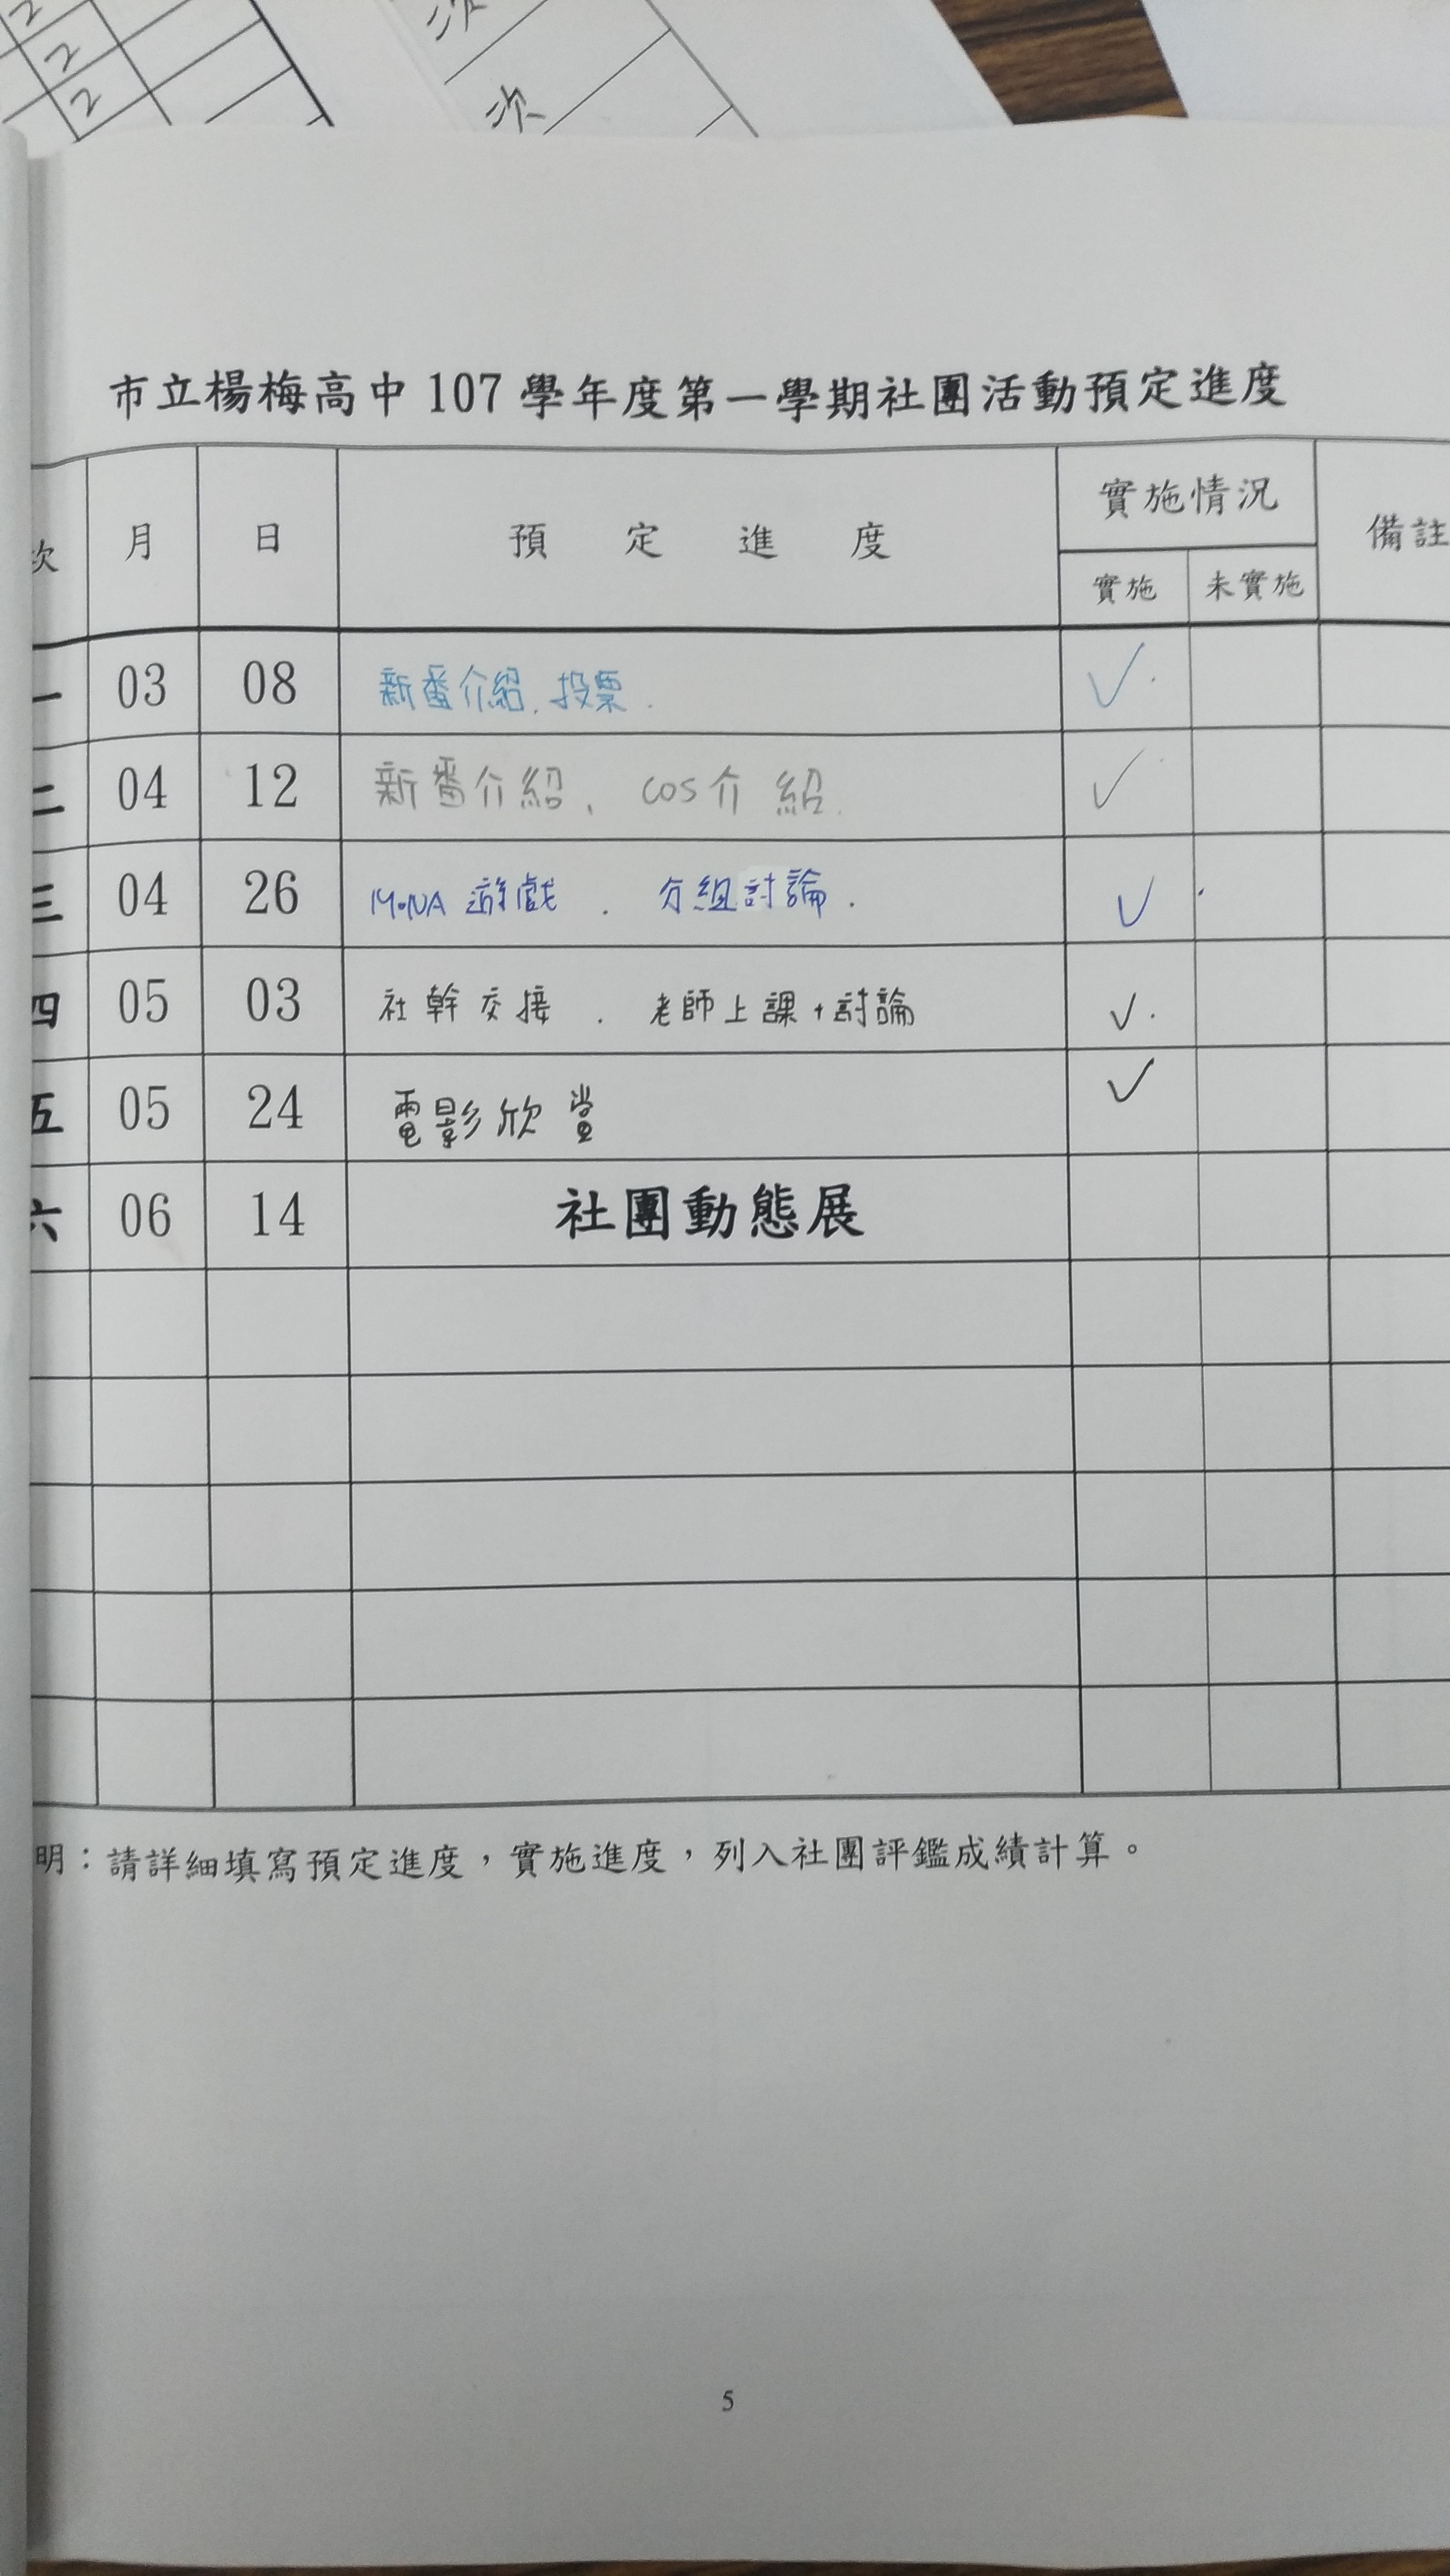 2
2
2
二次
二次
市立楊梅高中 107 學年度第一學期社團活動預定進度
次 月 日 預定進度 實施情況 備註
實施 未實施
一 03 08 新番介紹、投票. ✓
二 04 12 新番介紹、cos介紹. ✓
三 04 26 遊戲 . 分組討論. ✓
四 05 03 社幹交接 . 老師上課+討論 ✓
五 05 24 電影欣賞 ✓
六 06 14 社團動態展
明：請詳細填寫預定進度，實施進度，列入社團評鑑成績計算。
5